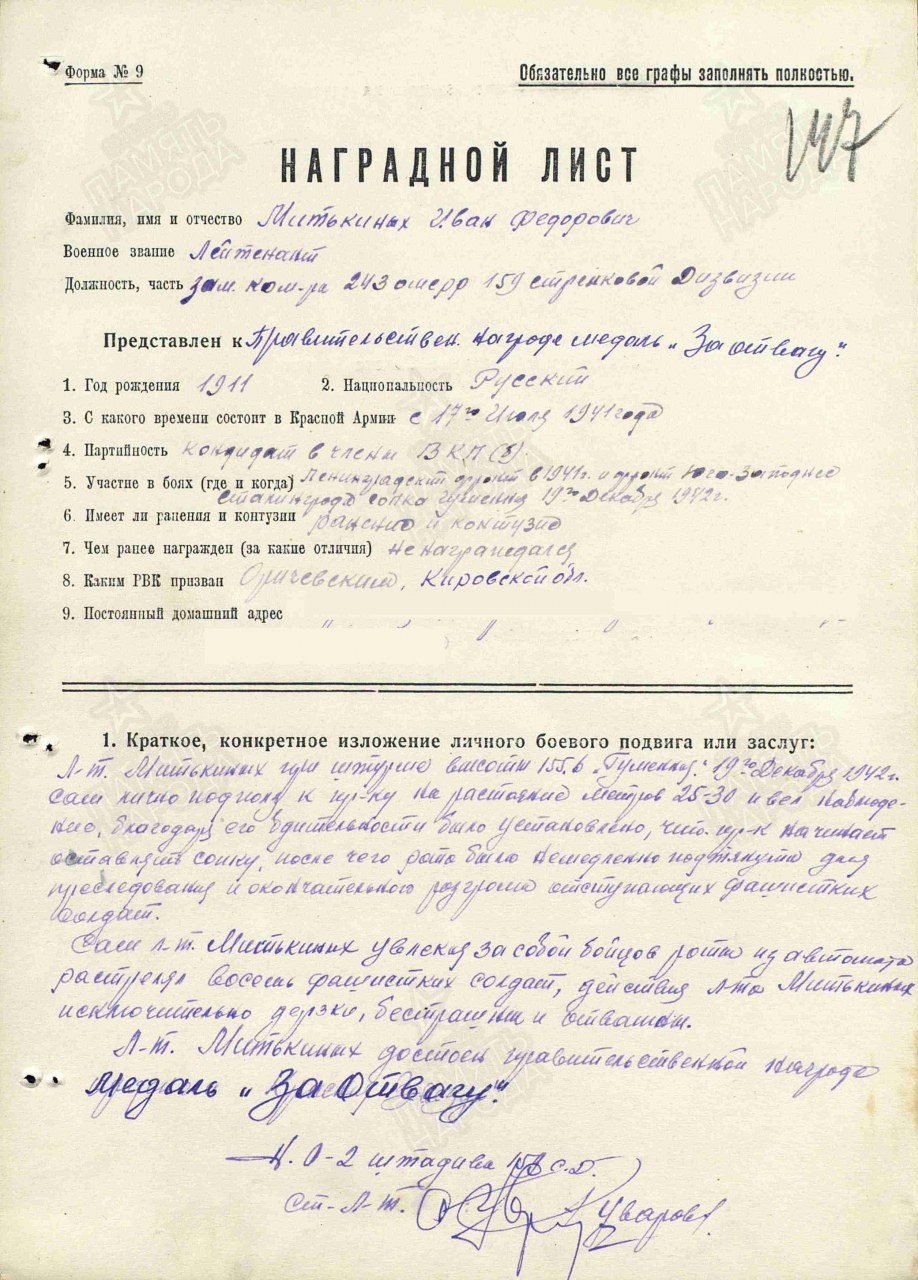 Форма № 9
Обязательно все графы заполнять полностью.
147
НАГРАДНОЙ ЛИСТ
Фамилия, имя и отчество Митькиных Иван Федорович
Военное звание Лейтенант
Должность, часть зам. ком-ра 243 омср 159 стрелковой Дизвизии
Представлен к Правительствен. награде медаль „За отвагу".
1. Год рождения 1911 2. Национальность Русский
3. С какого времени состоит в Красной Армии с 17го Июля 1941 года
4. Партийность кандидат в члены ВКП(б).
5. Участие в боях (где и когда) Ленинградский фронт в 1941г. и фронт Юго-Западнее
Сталинграда сопка Гуменная 19го Декабря 1942г.
6. Имеет ли ранения и контузии ранение и контузию
7. Чем ранее награжден (за какие отличия) не награждался
8. Каким РВК призван Оричевским, Кировской обл.
9. Постоянный домашний адрес „ „ „
1. Краткое, конкретное изложение личного боевого подвига или заслуг:
Л-т. Митькиных при штурме высоты 155.6 „Гуменная" 19го Декабря 1942г.
сам лично подполз к пр-ку на растояние метров 25-30 и вел наблюде-
ние, благодаря его бдительности было установлено, что пр-к начинает
оставлять сопку, после чего рота была немедленно подтянута для
преследования и окончательного розгрома отступающих фашистких
солдат.
Сам л-т. Митькиных увлекая за собой бойцов роты из автомата
растрелял восемь фашистких солдат, действия л-та Митькиных
исключительно дерзки, бестрашны и отважны.
Л-т. Митькиных достоен правительственной награде
Медаль „За Отвагу".
Н. О-2 штадива 159 с.д.
Ст-Л-т. Уваров